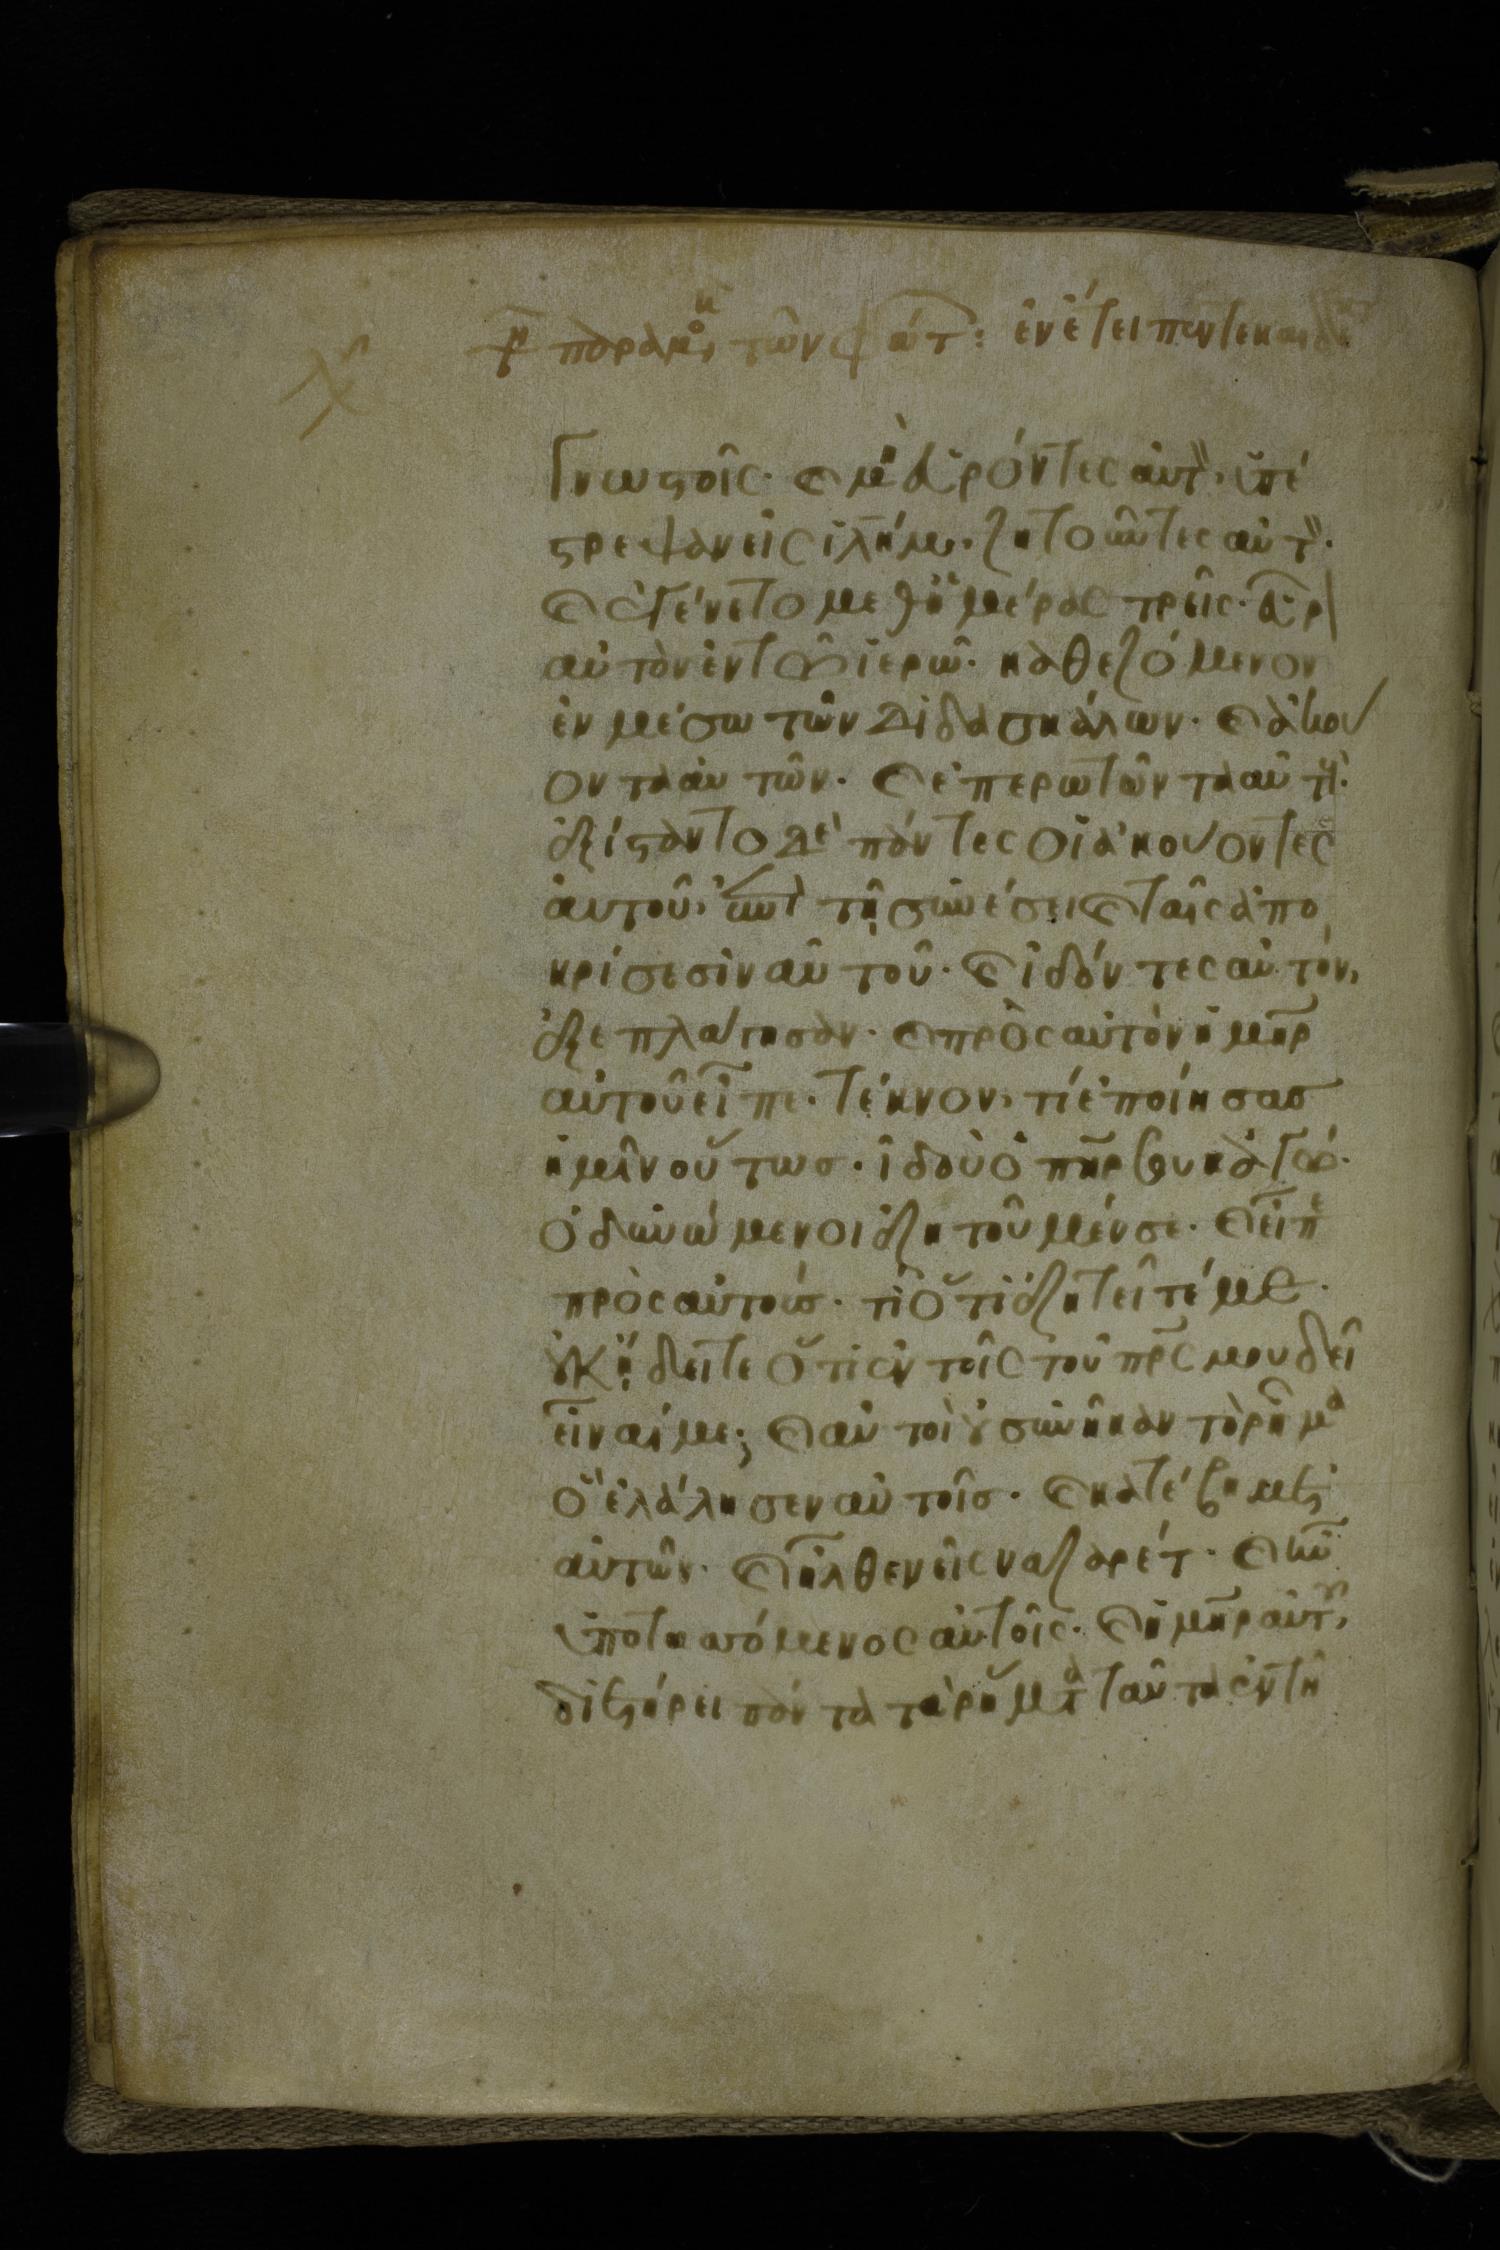 τῇ παραμονῇ τῶν φώτ: ἐν ἔτει πεντεκαιδε
γνωστοῖς· καὶ μὴ εὑρόντες αὐτὸν, ὑπέ
στρεψαν εἰς ἱλήμ· ζητοῦντες αὐτὸν·
καὶ ἐγένετο μεθ' ἡμέρας τρεῖς· εὗρ
αὐτὸν ἐν τῶ ἱερῶ· καθεζόμενον
ἐν μέσω τῶν διδασκάλων· καὶ ἀκού
οντα αὐτῶν· καὶ ἐπερωτῶντα αὐτούς·
ἐξίσταντο δὲ πάντες οἱ ἀκούοντες
αὐτοῦ, ἐπὶ τῆ συνέσει καὶ ταῖς ἀπο
κρίσεσιν αὐτοῦ· καὶ ἰδόντες αὐτὸν,
ἐξεπλάγησαν· καὶ πρὸς αὐτὸν ἡ μηρ
αὐτοῦ εἶπε· τέκνον, τί ἐποίησας
ἡμῖν οὕτως· ἰδοὺ ὁ πηρ σου κἀγὼ·
ὀδυνώμενοι ἐζητοῦμέν σε· καὶ εἶπε
πρὸς αὐτούς· τί ὅτι ἐζητεῖτέ με·
οὐκ ἤδειτε ὅτι ἐν τοῖς τοῦ πρς μου δεῖ
εἶναί με; καὶ αὐτοὶ οὐ συνῆκαν τὸ ῥῆμα
ὃ ἐλάλησεν αὐτοῖς· καὶ κατέβη μετ'
αὐτῶν· καὶ ἦλθεν εἰς ναζαρέτ· καὶ ἦν
ὑποτασσόμενος αὐτοῖς· καὶ ἡ μηρ αὐτοῦ,
διετήρει πάντα τὰ ῥήματα ταῦτα ἐν τῆ